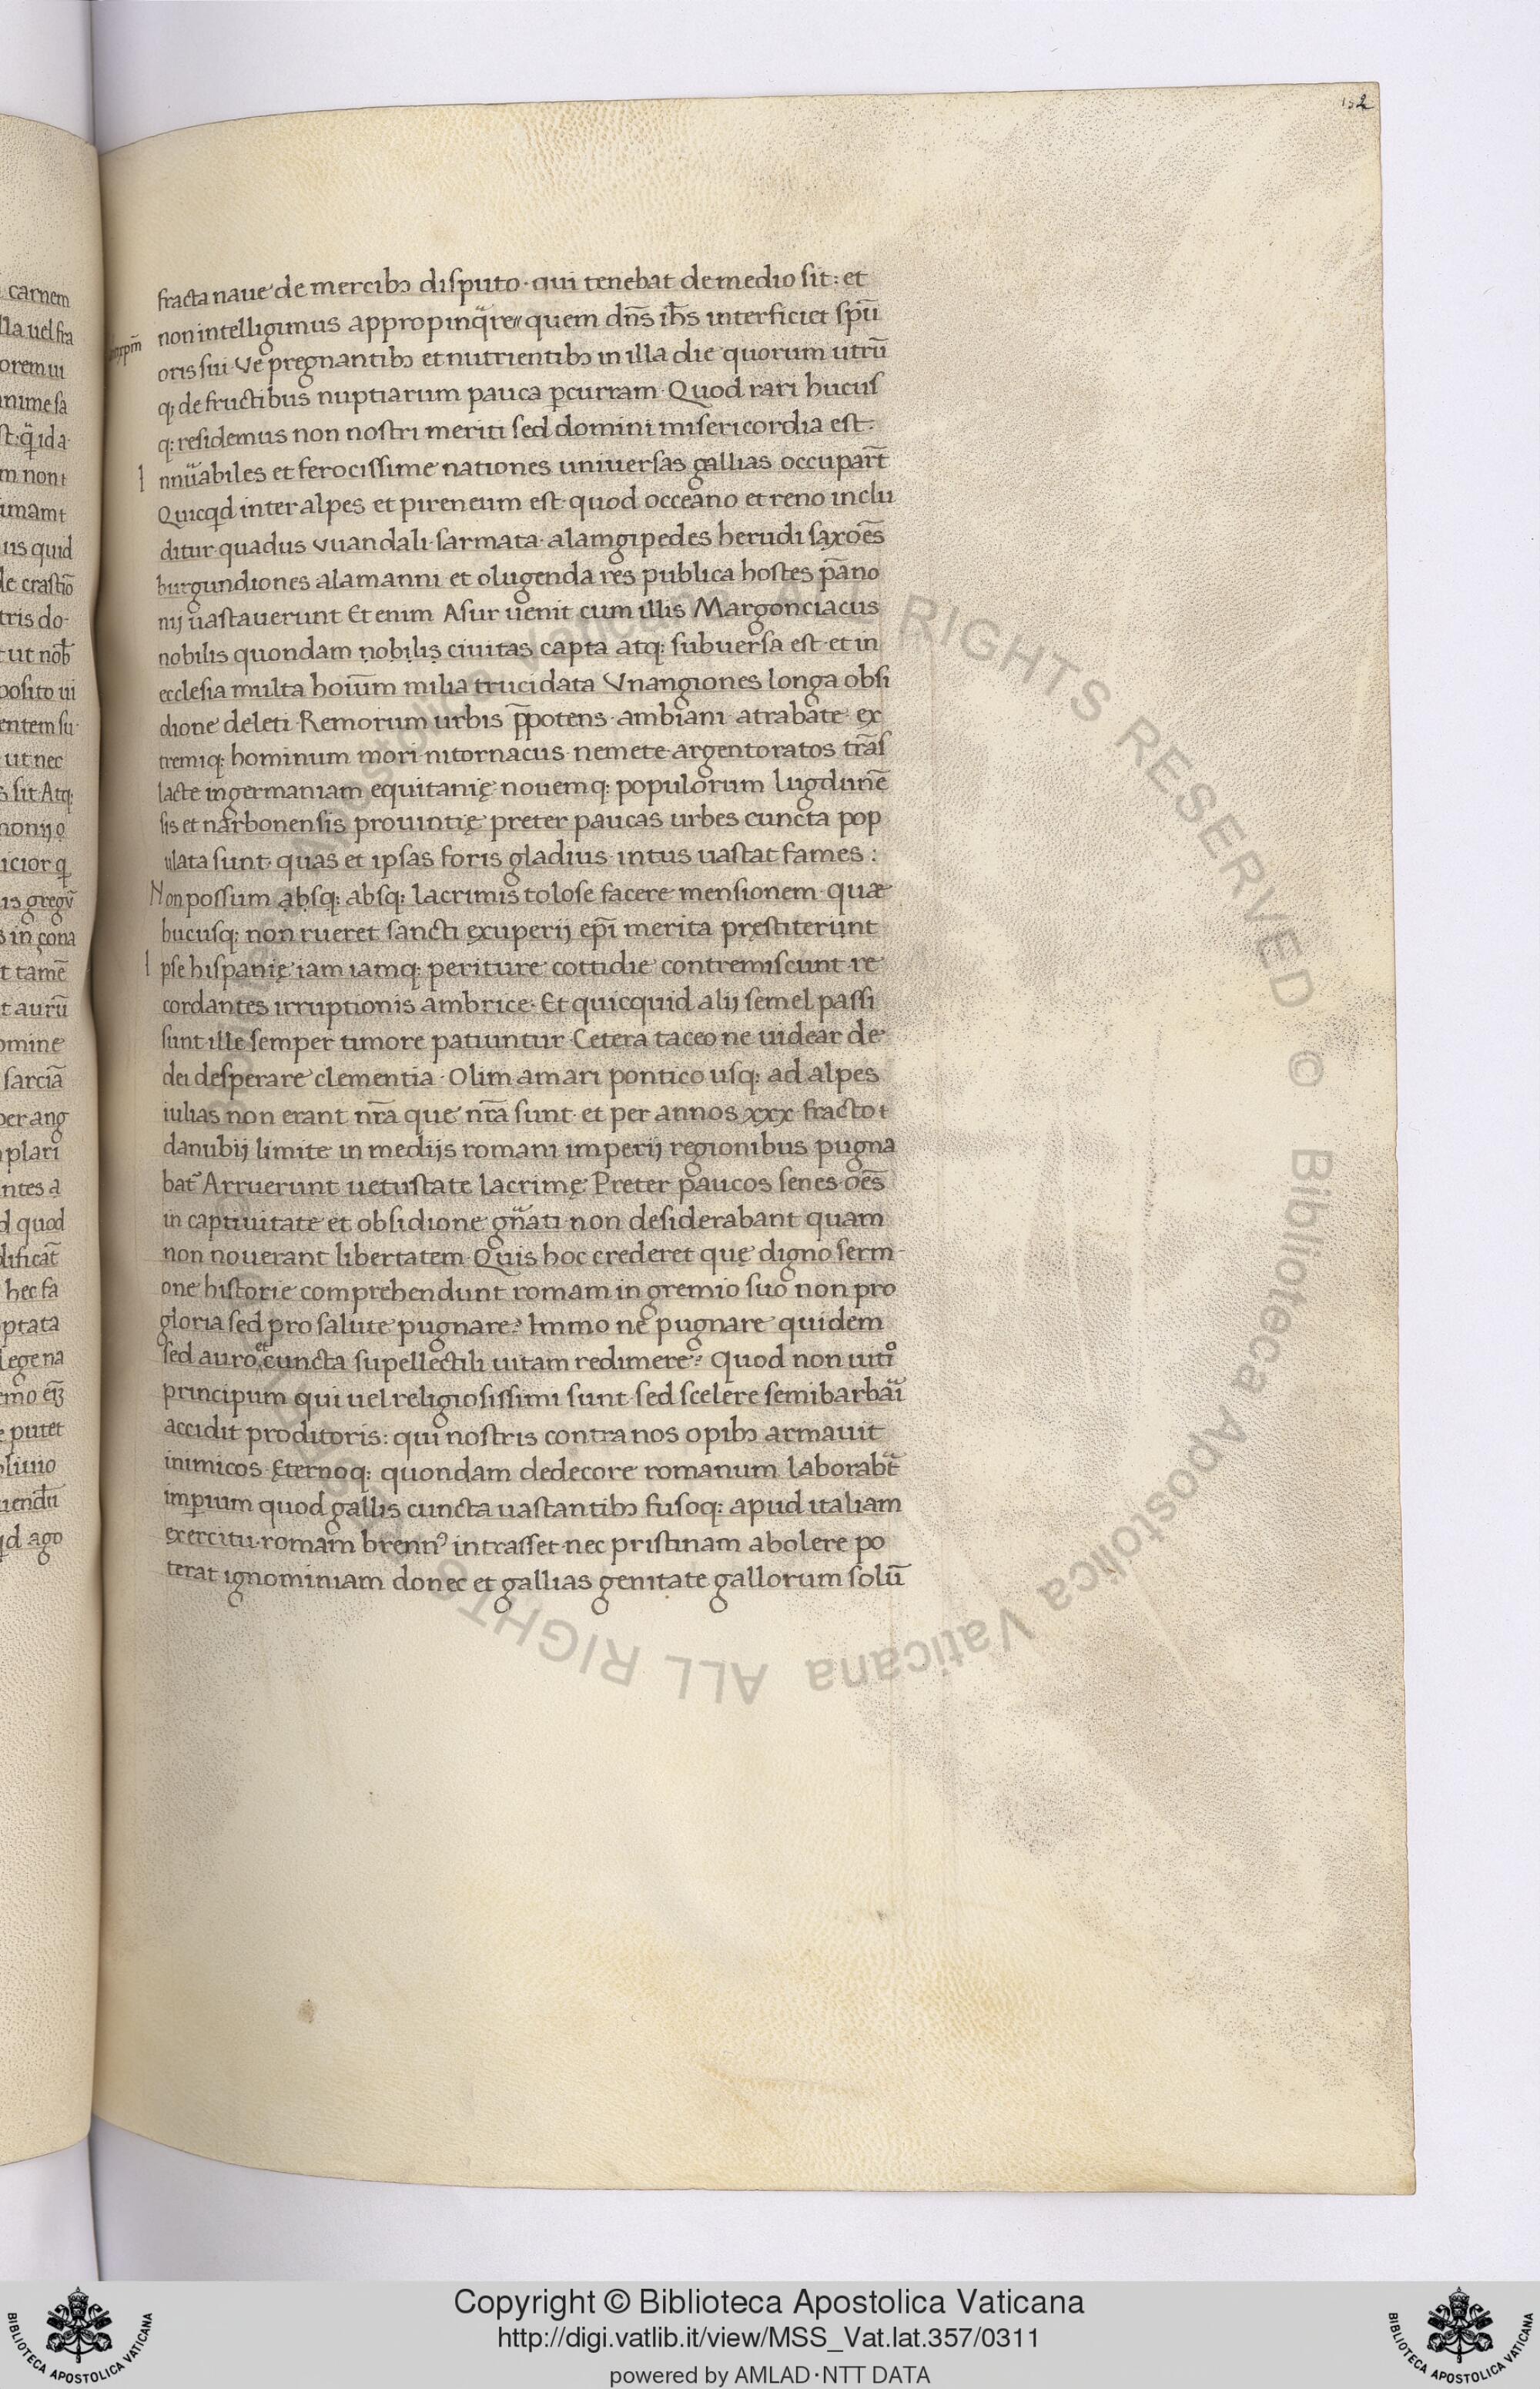 152
fracta naue de mercibꝫ disputo · qui tenebat de medio sit : et
non intelligimus appropinq̃re quem dñs ih̄s interficiet spū
oris sui · Ve pregnantibꝫ et nutrientibꝫ in illa die quorum utrū
qꝫ de fructibus nuptiarum pauca ꝑcurram · Quod rari hucus
qꝫ residemus non nostri meriti sed domini misericordia est ·
I nnũabiles et ferocissime nationes uniuersas gallias occupar̄t
Quicqd inter alpes et pireneum est · quod occeano et reno inclu
ditur · quadus vuandali · sarmata · alamgipedes herudi saxoēs
burgundiones alamanni et olugenda res publica hostes pāno
nij uastauerunt Et enim Asur uenit cum illis Margonciacus
nobilis quondam nobilis ciuitas capta atqꝫ subuersa est · et in
ecclesia multa hoiūm milia trucidata Vnangiones longa obsi
dione deleti · Remorum urbis p̄potens · ambiani · atrabate · ex
tremiqꝫ hominum mori · nitornacus · nemete · argentoratos trās
lacte in germaniam equitanię nouemqꝫ populorum lugdunē
sis et narbonensis prouintię preter paucas urbes cuncta pop
ulata sunt · quas et ipsas foris gladius · intus uastat fames :
Non possum absqꝫ absqꝫ lacrimis tolose facere mensionem · quæ
hucusqꝫ non rueret sancti exuperij ep̄i merita pręstiterunt
I pse hispanię iam iamqꝫ periture cottidie contremiscunt re
cordantes irruptionis ambrice · Et quicquid alij semel passi
sunt ille semper timore patiuntur · Cetera taceo ne uidear de
dei desperare clementia · Olim a mari pontico usqꝫ ad alpes
iulias non erant nr̄a que nr̄a sunt · et per annos xxx · fracto t
danubij limite in medijs romani imperij regionibus pugna
bat̄ Arruerunt uetustate lacrimę Preter paucos senes · oēs
in captiuitate et obsidione gñati · non desiderabant quam
non nouerant libertatem · Quis hoc crederet quę digno serm-
one historie comprehendunt romam in gremio suo non pro
gloria sed pro salute pugnare ? Immo ne pugnare quidem
sed auro et cuncta supellectili uitam redimere ? Quod non uitio
principum qui uel religiosissimi sunt · sed scelere semibarbāi
accidit proditoris : qui nostris contra nos opibꝫ armauit
inimicos · Ęternoqꝫ quondam dedecore romanum laborabt̄
imꝑium quod gallis cuncta uastantibꝫ fusoqꝫ apud italiam
exercitu · romam brennꝰ intrasset · nec pristinam abolere po
terat ignominiam donec et gallias genitate gallorum solū
Copyright © Biblioteca Apostolica Vaticana
http://digi.vatlib.it/view/MSS_Vat.lat.357/0311
powered by AMLAD·NTT DATA